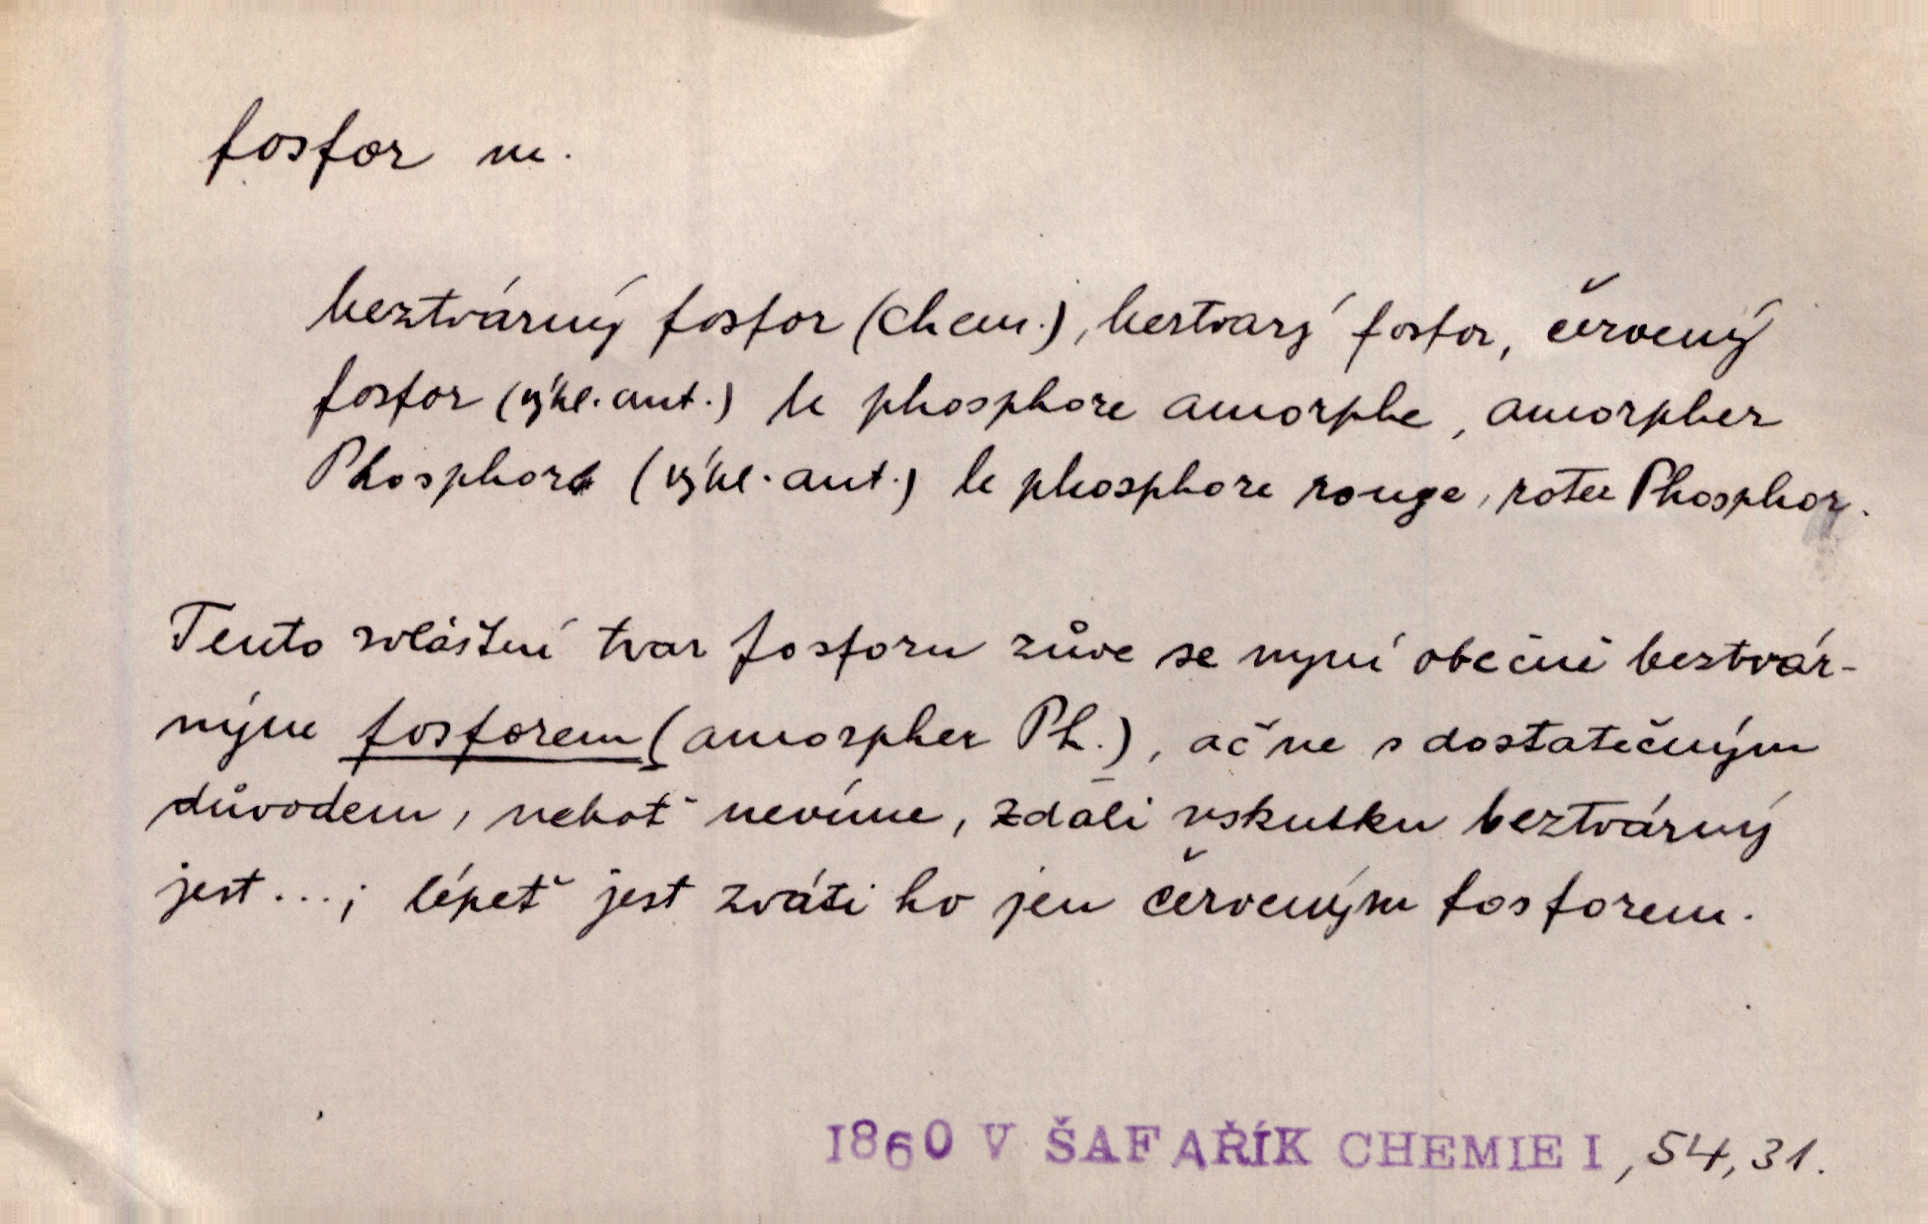 fosfor m.
beztvárný fosfor (chem.), beztvarý fosfor, červený
fosfor (výkl. aut.) le phosphore amorphe, amorpher
Phosphor (výkl. aut.) le phosphore rouge, roter Phosphor.
Tento zvláštní tvar fosforu zůve se nyní obecně beztvár-
ným fosforem (amorpher Ph.), ač ne s dostatečným
důvodem, neboť nevíme, zdali vskutku beztvárný
jest...; lépeť jest zváti ho jen červeným fosforem.
1860 V ŠAFAŘÍK CHEMIE I, 54, 31.